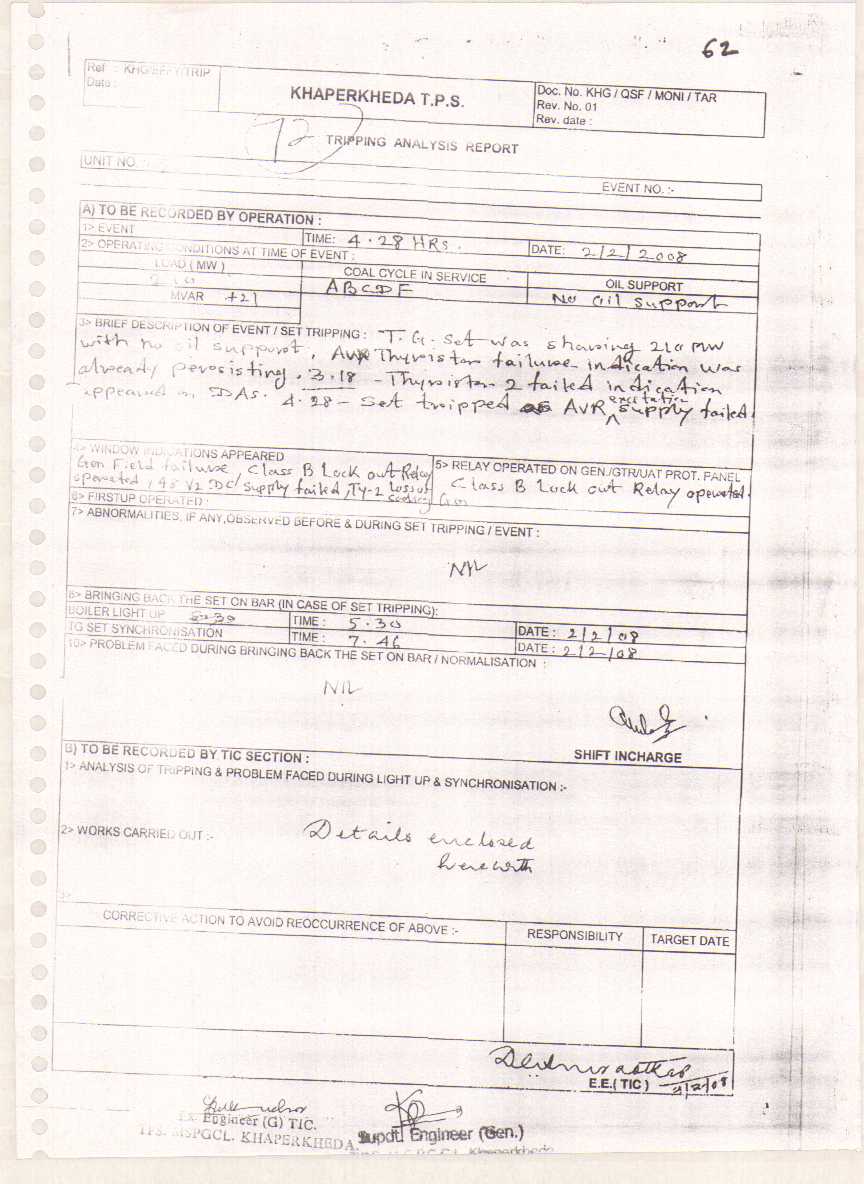 62
Ref : KHG/EFFY/TRIP
Date :
KHAPERKHEDA T.P.S.
Doc. No. KHG / QSF / MONI / TAR
Rev. No. 01
Rev. date :
72
TRIPPING ANALYSIS REPORT
UNIT NO.
EVENT NO. :-
A) TO BE RECORDED BY OPERATION :
1> EVENT TIME: 4.28 HRS. DATE: 2/2/2008
2> OPERATING CONDITIONS AT TIME OF EVENT :
LOAD ( MW ) COAL CYCLE IN SERVICE OIL SUPPORT
210 ABCDF No oil support
MVAR +21
3> BRIEF DESCRIPTION OF EVENT / SET TRIPPING : T.G. set was sharing 210 MW
with no oil support, AVR Thyristor failure indication was
already persisting. 3.18 - Thyristor 2 failed indication
appeared on DAS. 4.28 - Set tripped as AVR excitation supply failed.
4> WINDOW INDICATIONS APPEARED
Gen Field failure, Class B Lock out Relay
operated, 48 V2 DC supply failed, Ty-2 Loss of cooling
5> RELAY OPERATED ON GEN./GTR/UAT PROT. PANEL
Class B Lock out Relay operated.
6> FIRSTUP OPERATED :
7> ABNORMALITIES, IF ANY,OBSERVED BEFORE & DURING SET TRIPPING / EVENT :
NIL
8> BRINGING BACK THE SET ON BAR (IN CASE OF SET TRIPPING):
BOILER LIGHT UP TIME : 5.30 DATE : 2/2/08
TG SET SYNCHRONISATION TIME : 7.46 DATE : 2/2/08
10> PROBLEM FACED DURING BRINGING BACK THE SET ON BAR / NORMALISATION :
NIL
SHIFT INCHARGE
B) TO BE RECORDED BY TIC SECTION :
1> ANALYSIS OF TRIPPING & PROBLEM FACED DURING LIGHT UP & SYNCHRONISATION :-
2> WORKS CARRIED OUT :- Details enclosed
herewith
3>
CORRECTIVE ACTION TO AVOID REOCCURRENCE OF ABOVE :- RESPONSIBILITY TARGET DATE
E.E.( TIC ) 2/2/08
Ex Engineer (G) TIC.
TPS. MSPGCL. KHAPERKHEDA
Supdt. Engineer (Gen.)